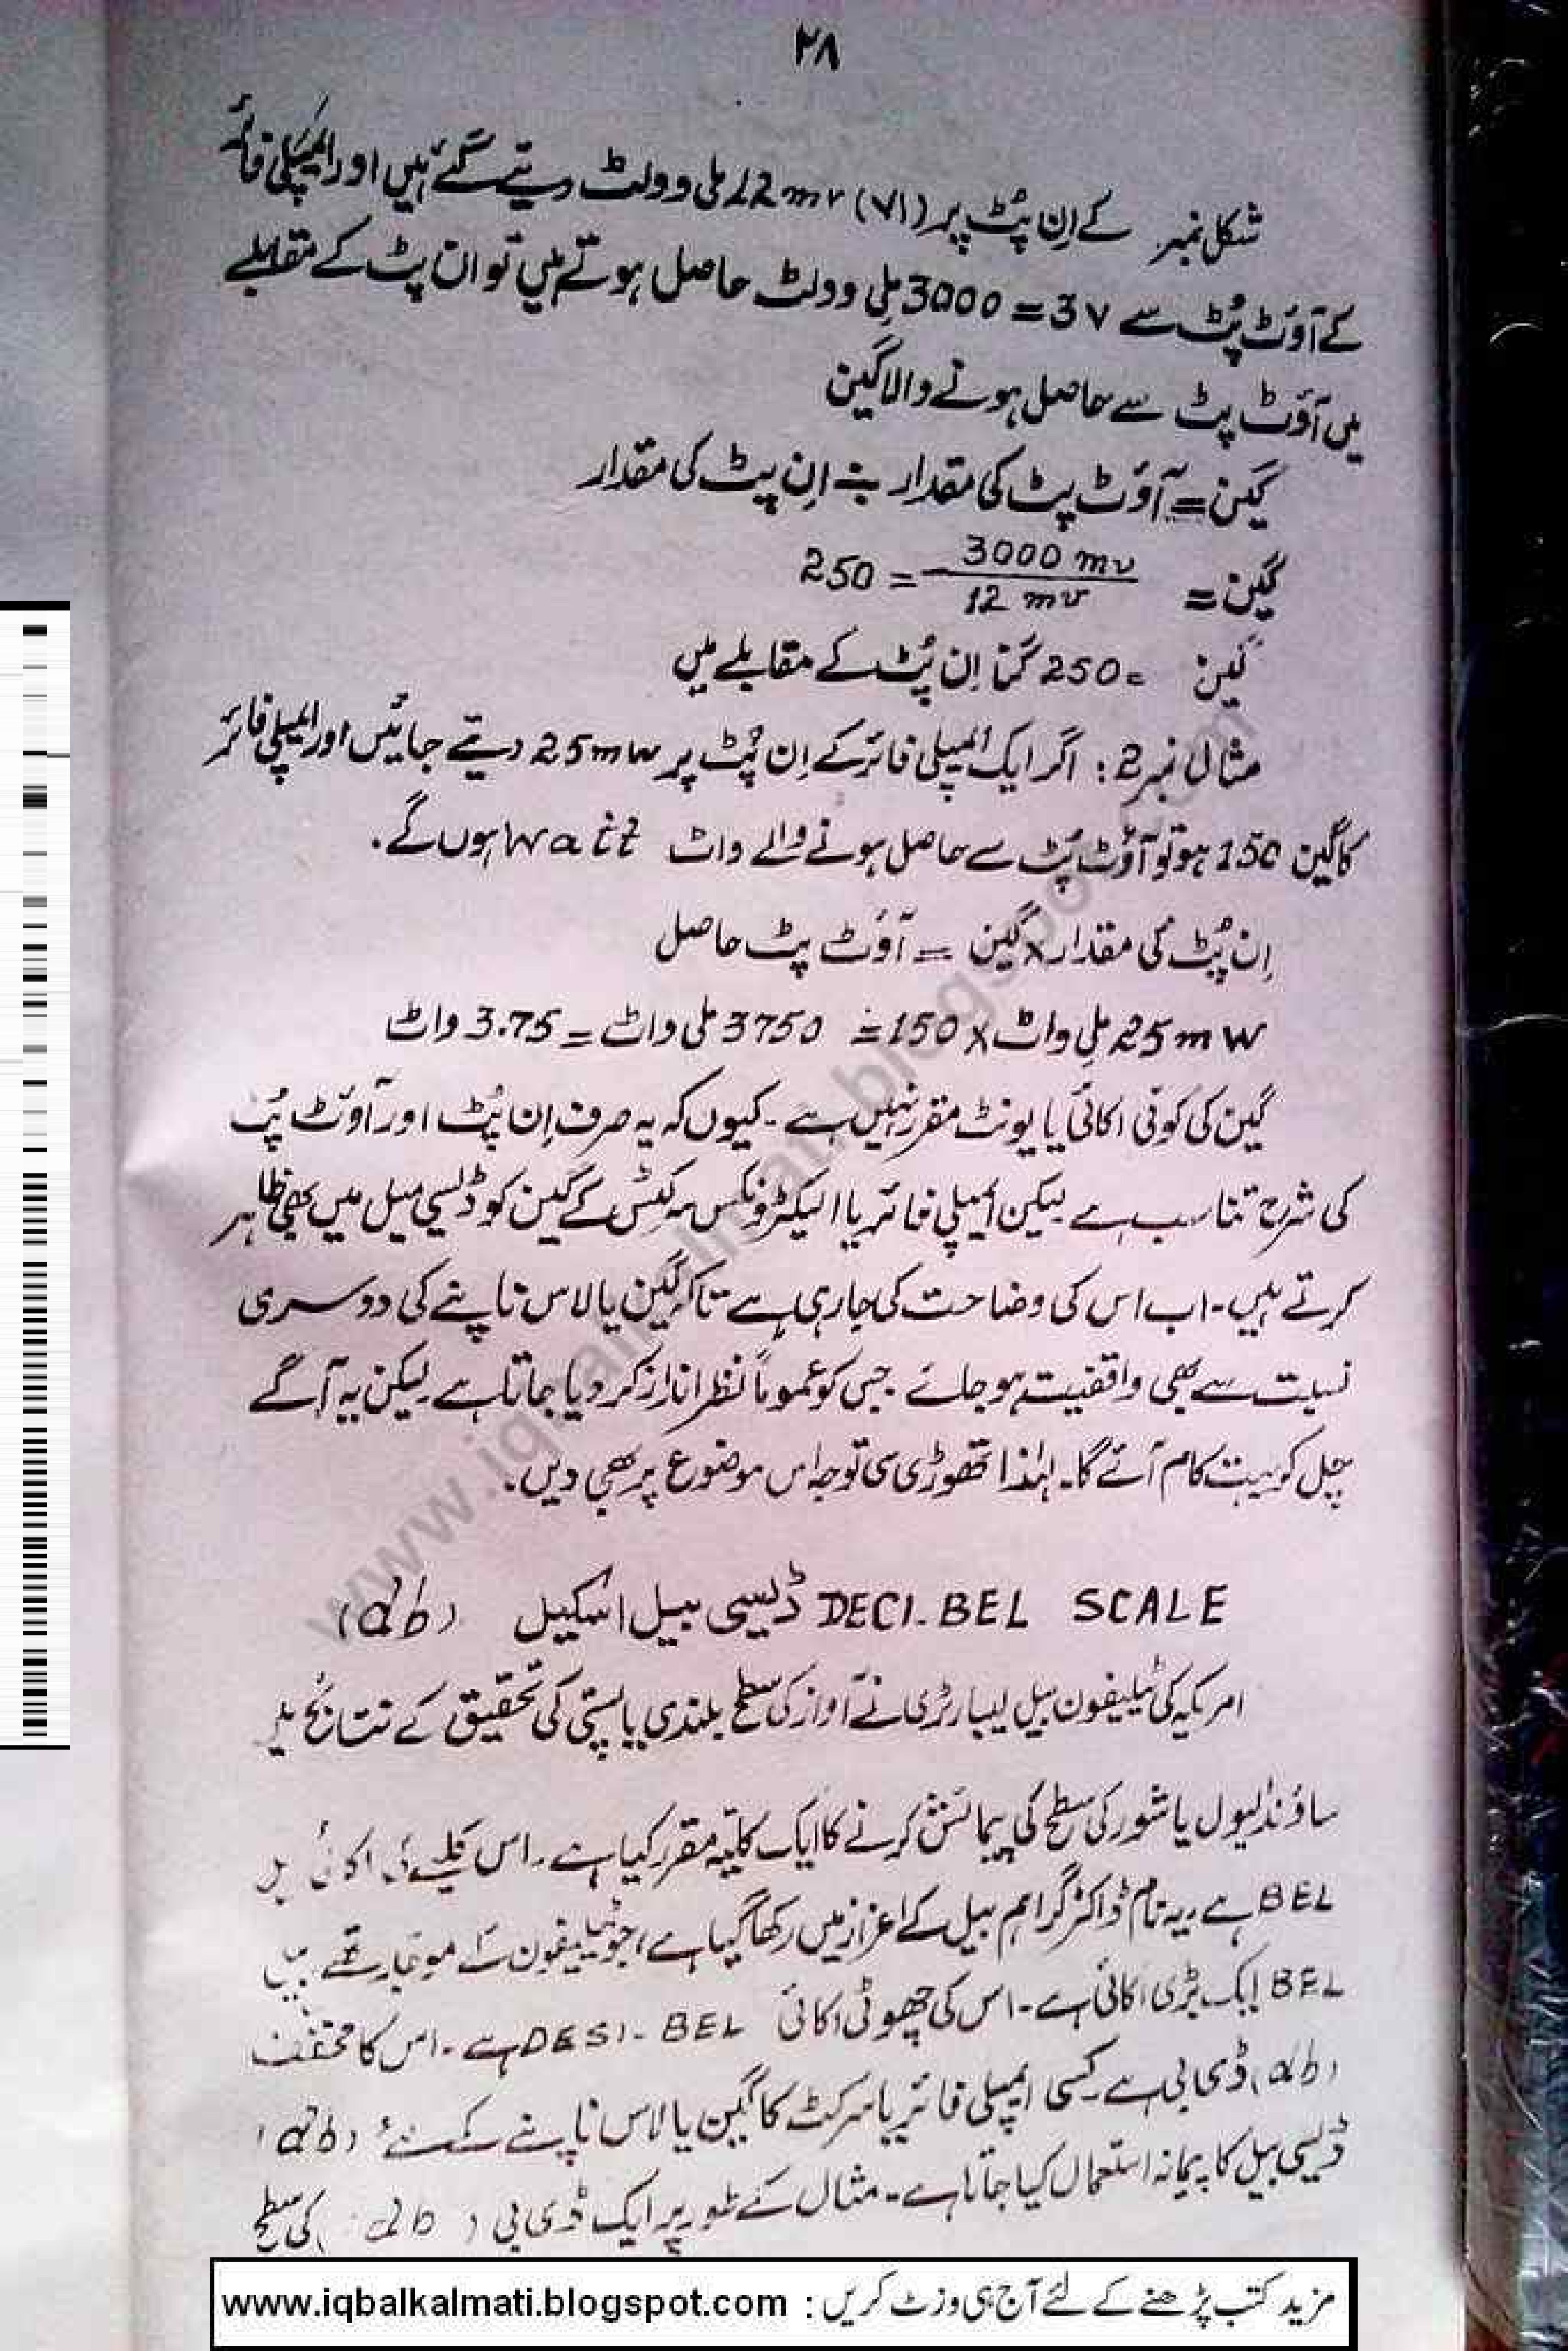 ۲۸
شکل نمبر کے اِن پُٹ پر (V1) 12mv ملی وولٹ دیئے گئے ہیں اور ایمپلی فائر
کے آؤٹ پُٹ سے 3v = 3000 ملی وولٹ حاصل ہوتے ہیں تو ان پٹ کے مقابلے
میں آؤٹ پٹ سے حاصل ہونے والا گین
گین = آؤٹ پٹ کی مقدار ÷ اِن پٹ کی مقدار
گین = 3000 mv / 12 mv = 250
گین = 250 گنا اِن پُٹ کے مقابلے میں
مثال نمبر 2: اگر ایک ایمپلی فائر کے اِن پُٹ پر 25mw دیتے جائیں اور ایمپلی فائر
کا گین 150 ہو تو آؤٹ پُٹ سے حاصل ہونے والے واٹ Watt ہوں گے۔
اِن پُٹ کی مقدار x گین = آؤٹ پٹ حاصل
25mW ملی واٹ x 150 = 3750 ملی واٹ = 3.75 واٹ
گین کی کوئی اکائی یا یونٹ مقرر نہیں ہے۔ کیوں کہ یہ صرف اِن پُٹ اور آؤٹ پُٹ
کی شرح تناسب ہے لیکن ایمپلی فائر یا الیکٹرونکس سرکٹس کے گین کو ڈیسی بیل میں بھی ظاہر
کرتے ہیں۔ اب اس کی وضاحت کی جا رہی ہے تاکہ گین یا لاس ناپنے کی دوسری
نسبت سے بھی واقفیت ہو جائے۔ جس کو عموماً نظر انداز کر دیا جاتا ہے لیکن یہ آگے
چل کر بہت کام آئے گا۔ لہٰذا تھوڑی سی توجہ اس موضوع پر بھی دیں۔
DECI-BEL SCALE ڈیسی بیل اسکیل (db)
امریکہ کی ٹیلیفون بیل لیبارٹری نے آواز کی سطح بلندی یا پستی کی تحقیق کے نتائج پر
ساؤنڈ لیول یا شور کی سطح کی پیمائش کرنے کا ایک کلیّہ مقرر کیا ہے۔ اس کلیے کی اکائی بل
BEL ہے۔ یہ نام ڈاکٹر گراہم بیل کے اعزاز میں رکھا گیا ہے، جو ٹیلیفون کے موجد تھے بیل
BEL ایک بڑی اکائی ہے۔ اس کی چھوٹی اکائی DESI-BEL ہے۔ اس کا مخفف
(db) ڈی بی ہے۔ کسی ایمپلی فائر یا سرکٹ کا گین یا لاس ناپنے کے لئے (db)
ڈیسی بیل کا پیمانہ استعمال کیا جاتا ہے۔ مثال کے طور پر ایک ڈی بی (db) کی سطح
مزید کتب پڑھنے کے لئے آج ہی وزٹ کریں : www.iqbalkalmati.blogspot.com
www.iqbalkalmati.blogspot.com